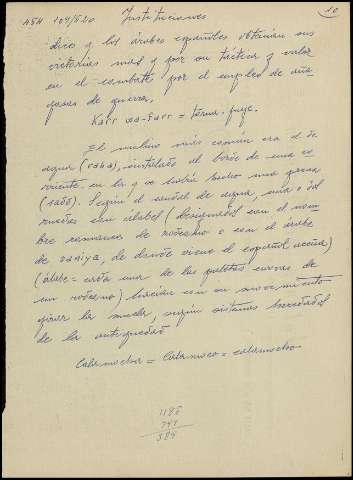 ASH 104/520 Instituciones 10
dico y los árabes españoles obtenían sus
victorias más y por su táctica y valor
en el combate por el empleo de aña-
gazas de guerra.
Karr wa-farr = torna-fuye.
El molino más común era el de
agua (raha), instalado al borde de una co-
rriente, en la q se había hecho una presa
(sadd). Según el caudal de agua, una o dos
ruedas con álabes (designadas con el nom-
bre romance de rodezno o con el árabe
de saniya, de donde viene el español aceña)
(álabe = cada una de las paletas curvas de
un rodezno) hacían con su movimiento
girar la muela, según sistemas heredados
de la antigüedad
Calamocha = Calamoco = calamocho
1185
741
384